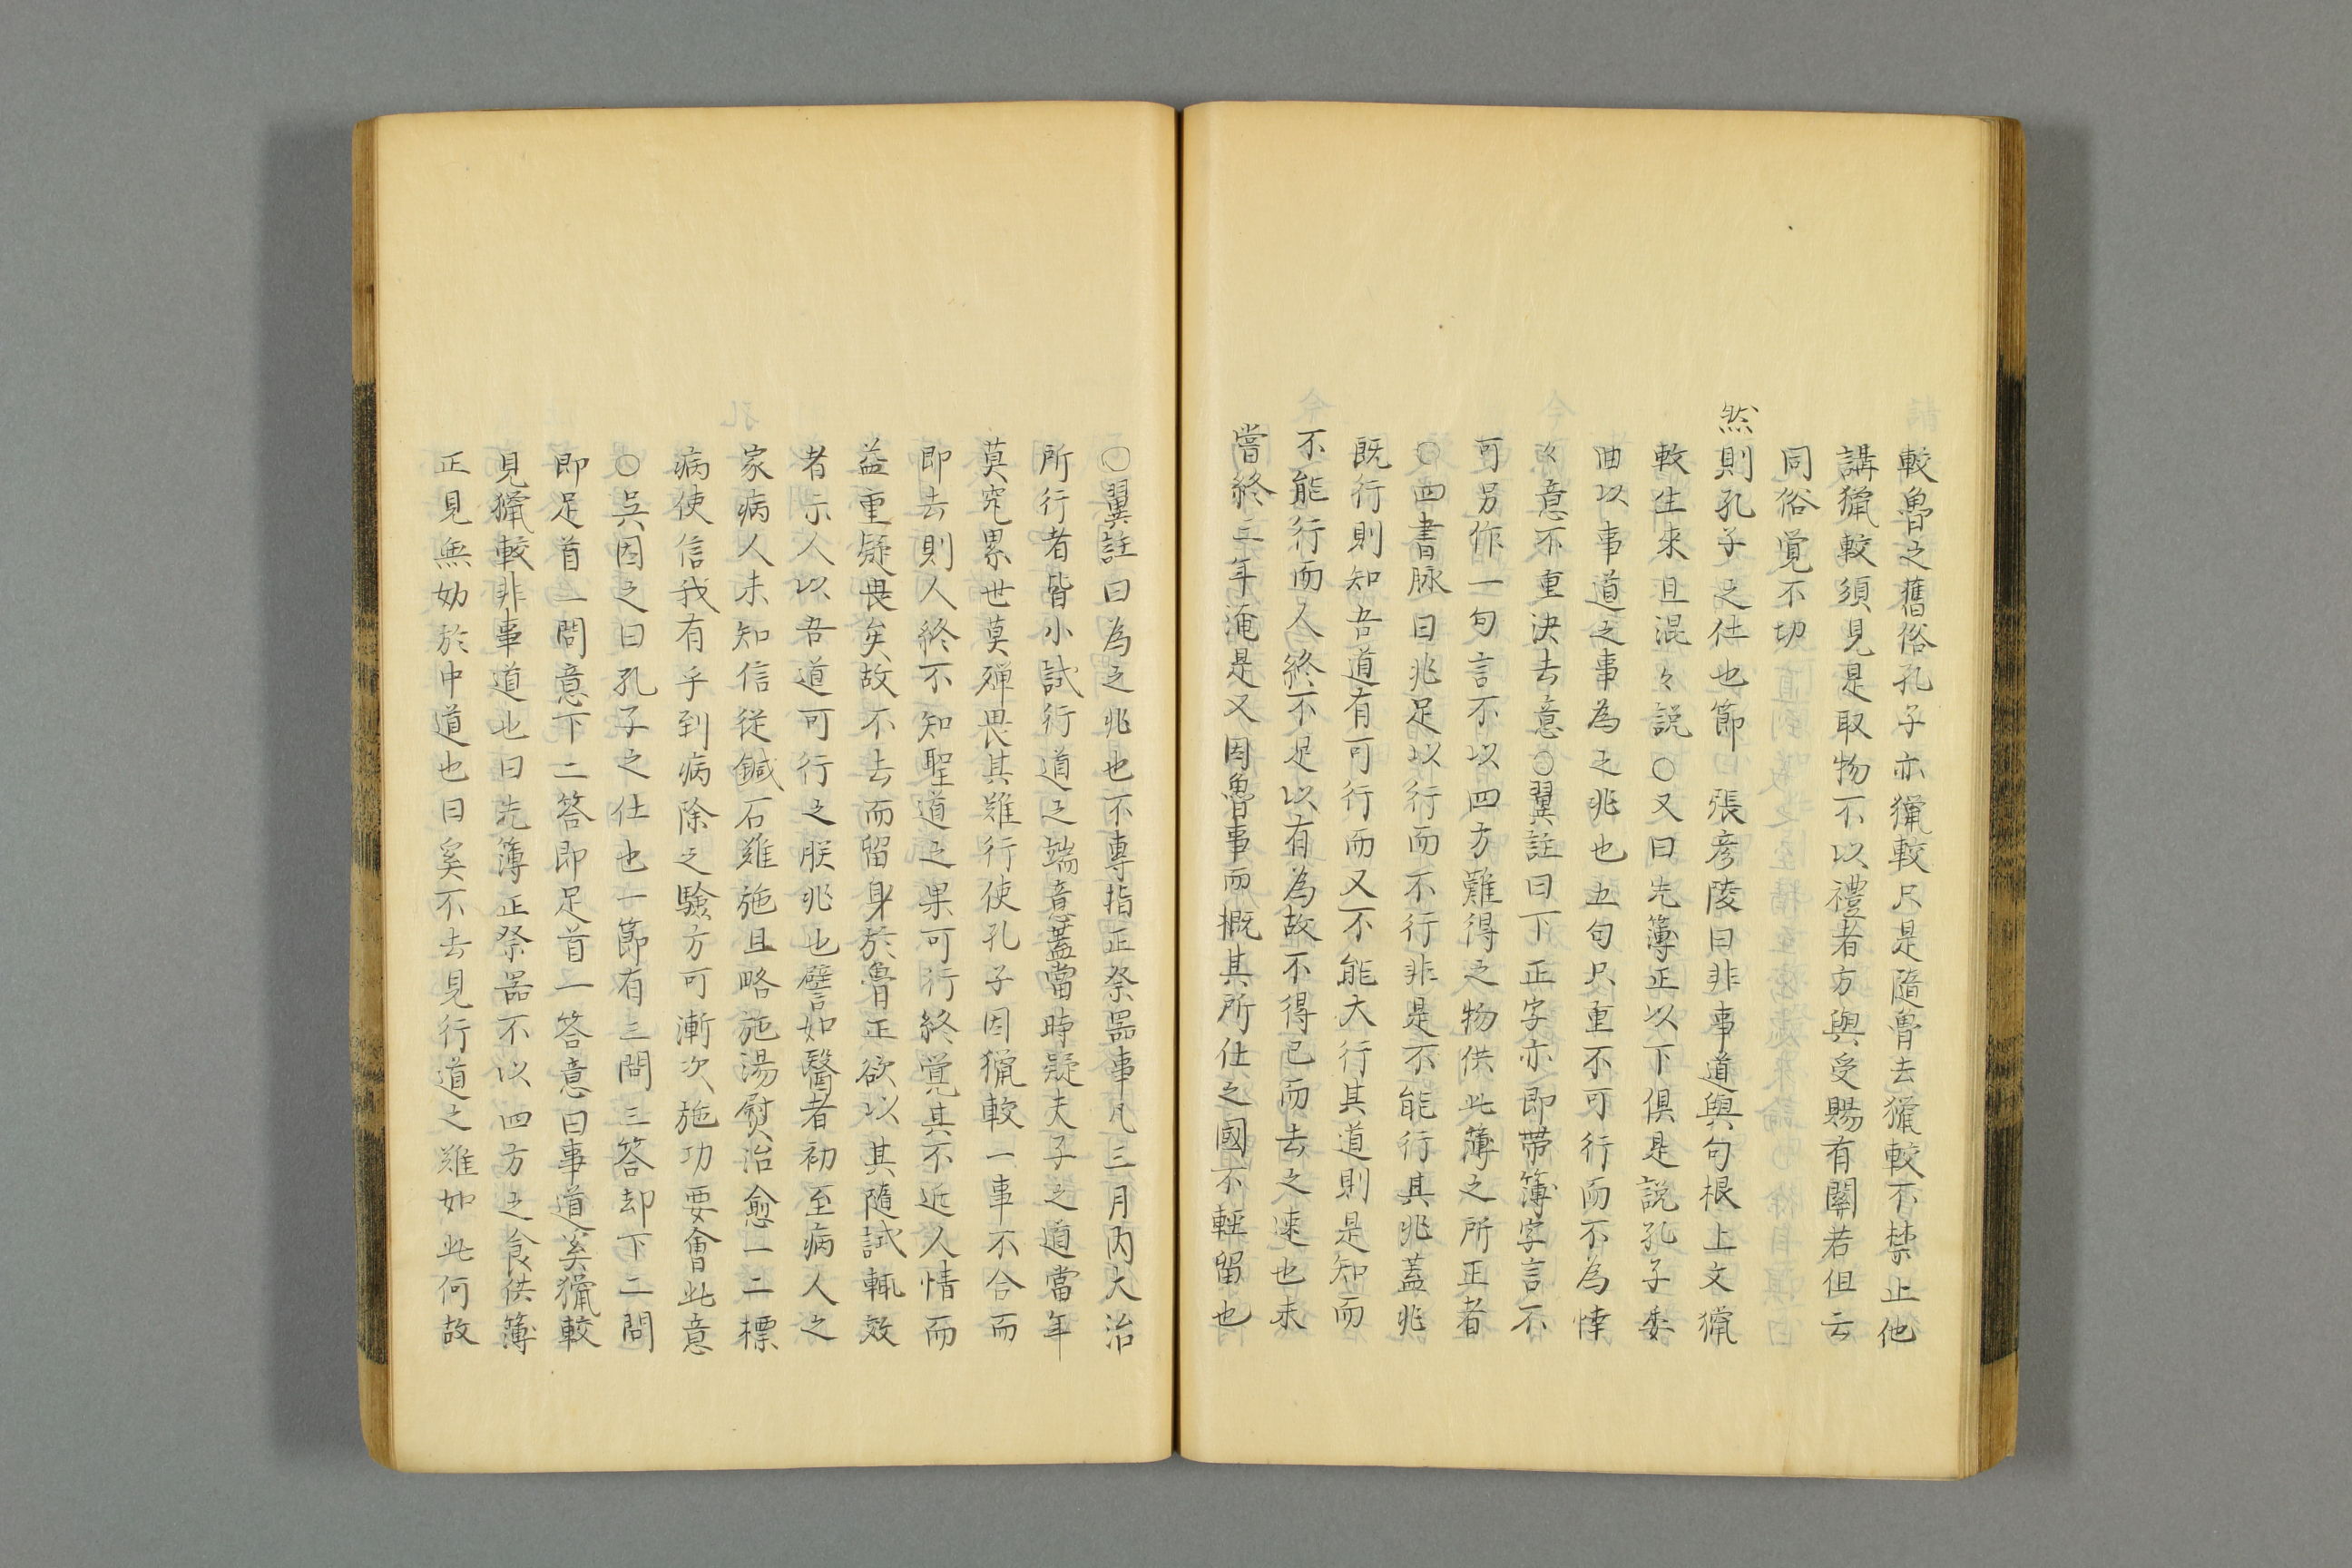 較魯之舊俗孔子亦獵較只是隨魯去獵較不禁止他
講獵較須見是取物不以禮者方與受賜有關若但云
同俗覚不切
然則孔子之仕也節 張彦陵曰非事道與句根上文獵
較生来且混々説○又曰先簿正以下俱是説孔子委
曲以事道之事為之兆也五句只重不可行而不為悻
々意不重決去意○翼註曰下正字亦即带簿字言不
可另作一句言不以四方難得之物供此薄之所正者
○四書脉曰兆足以行而不行非是不能行其兆蓋兆
既行則知吾道有可行而又不能大行其道則是知而
不能行而人終不足以有為故不得已而去之速也未
嘗終三年淹是又因魯事而概其所仕之國不輕留也
○翼註曰為之兆也不專指正祭噐事凡三月内大治
所行者皆小試行道之端意蓋當時疑夫子之道當年
莫究累世莫殫畏其難行使孔子因獵較一事不合而
即去則人終不知聖道之果可行終覚其不近人情而
益重疑畏矣故不去而留身於魯正欲以其隨試輒效
者示人以吾道可行之朕兆也譬如醫者初至病人之
家病人未知信從鍼石难施且略施湯熨治愈一二標
病使信我有乎到病除之験方可漸次施功要會此意
○吳因之曰孔子之仕也一節有三問三答却下二問
即足首一問意下二答即足首一答意曰事道奚獵較
見獵較非事道也曰先簿正祭噐不以四方之食供薄
正見無妨於中道也曰奚不去見行道之难如此何故